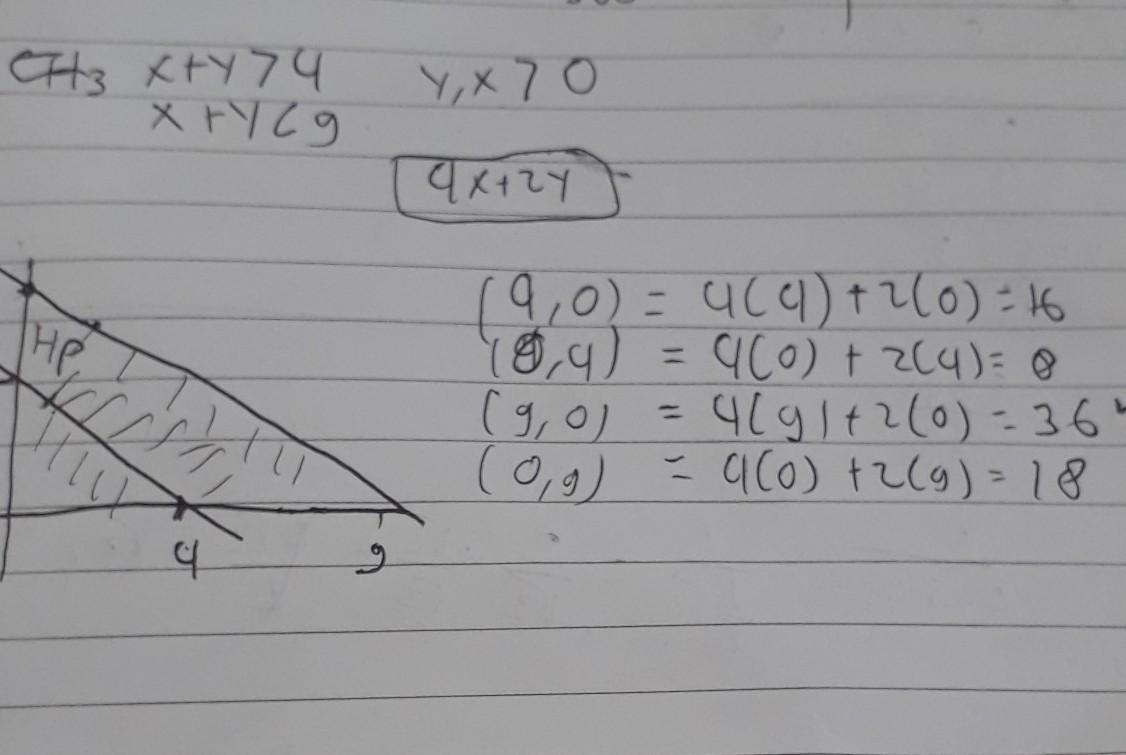 CTH3 x+y>4 y,x>0
x+y<9
4x+2y
(4,0) = 4(4)+2(0)=16
(0,4) = 4(0)+2(4)=8
(9,0) = 4(9)+2(0)=36
(0,9) = 4(0)+2(9)=18
HP
4 9